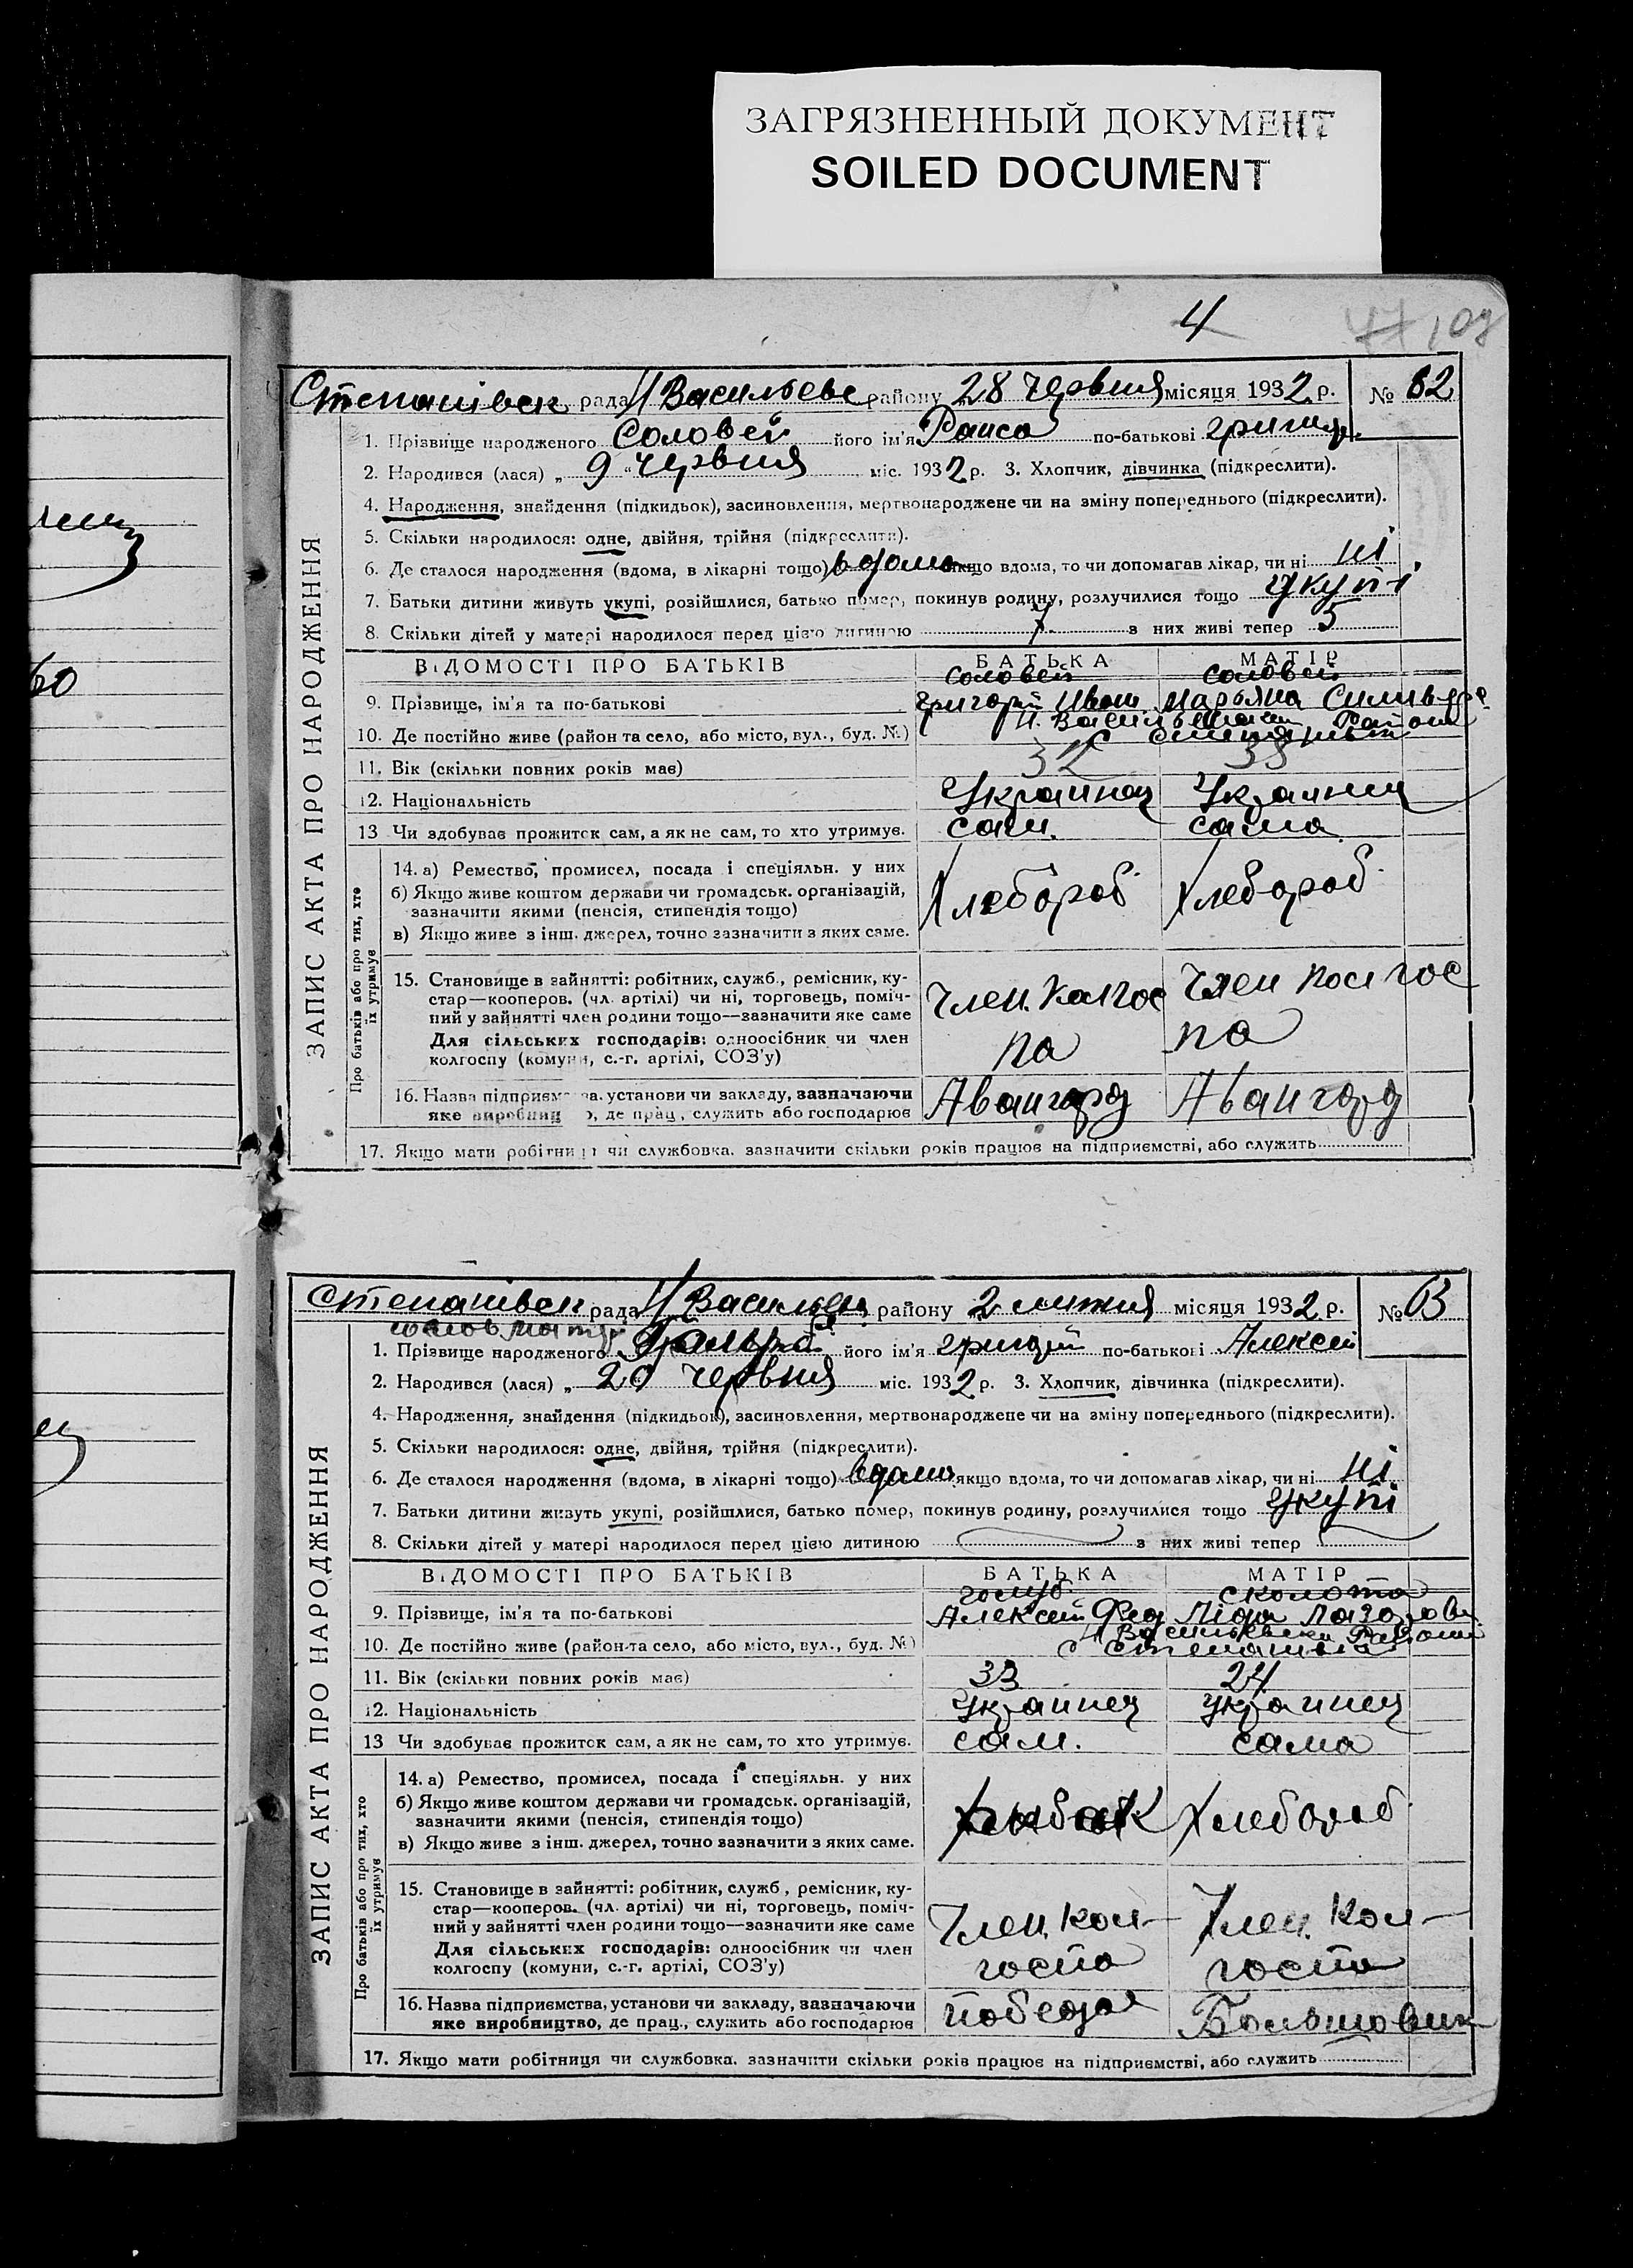 ЗАГРЯЗНЕННЫЙ ДОКУМЕНТ
SOILED DOCUMENT
4
ЗАПИС АКТА ПРО НАРОДЖЕННЯ
Степанівськ рада Н Васильевс району 28 червня місяця 1932 р. № 62
1. Прізвище народженого Соловей його ім'я Раиса по-батькові григор.
2. Народився (лася) „ 9 “ червня міс. 1932 р. 3. Хлопчик, дівчинка (підкреслити).
4. Народження, знайдення (підкидьок), засиновлення, мертвонароджене чи на зміну попереднього (підкреслити).
5. Скільки народилося: одне, двійня, трійня (підкреслити).
6. Де сталося народження (вдома, в лікарні тощо) вдома якщо вдома, то чи допомагав лікар, чи ні ні
7. Батьки дитини живуть укупі, розійшлися, батько помер, покинув родину, розлучилися тощо укупі
8. Скільки дітей у матері народилося перед цією дитиною 7 з них живі тепер 5
ВІДОМОСТІ ПРО БАТЬКІВ БАТЬКА МАТІР
Соловей Соловей
9. Прізвище, ім'я та по-батькові григорій Иван Марьяна
10. Де постійно живе (район та село, або місто, вул., буд. №) Н. Васильевський Район
11. Вік (скільки повних років має) 32 38
12. Національність Украинец Украинец
13 Чи здобуває прожиток сам, а як не сам, то хто утримує. сам. сама
Про батьків або про тих, хто їх утримує
14. а) Ремество, промисел, посада і спеціяльн. у них
б) Якщо живе коштом держави чи громадськ. організацій, зазначити якими (пенсія, стипендія тощо)
Хлебороб Хлебороб
в) Якщо живе з інш. джерел, точно зазначити з яких саме.
15. Становище в зайнятті: робітник, служб., ремісник, ку-
стар—кооперов. (чл. артілі) чи ні, торговець, поміч-
ний у зайнятті член родини тощо—зазначити яке саме
Для сільських господарів: одноосібник чи член
колгоспу (комуни, с.-г. артілі, СОЗ'у)
Член. Колгос Член Колгос
па па
16. Назва підприємства, установи чи закладу, зазначаючи
яке виробництво, де прац., служить або господарює
Авангард Авангард
17. Якщо мати робітниця чи службовка, зазначити скільки років працює на підприємстві, або служить
ЗАПИС АКТА ПРО НАРОДЖЕННЯ
Степанівськ рада Н Васильевс району 2 липня місяця 1932 р. № 63
1. Прізвище народженого його ім'я григорій по-батькові Алексей
2. Народився (лася) „ 20 червня міс. 1932 р. 3. Хлопчик, дівчинка (підкреслити).
4. Народження, знайдення (підкидьок), засиновлення, мертвонароджене чи на зміну попереднього (підкреслити).
5. Скільки народилося: одне, двійня, трійня (підкреслити).
6. Де сталося народження (вдома, в лікарні тощо) вдома якщо вдома, то чи допомагав лікар, чи ні ні
7. Батьки дитини живуть укупі, розійшлися, батько помер, покинув родину, розлучилися тощо укупі
8. Скільки дітей у матері народилося перед цією дитиною з них живі тепер
ВІДОМОСТІ ПРО БАТЬКІВ БАТЬКА МАТІР
голуб сколота
9. Прізвище, ім'я та по-батькові Алексей Фед Ліда Лазорова
10. Де постійно живе (район та село, або місто, вул., буд. №) Н Васильевський Район
с Степанівка
11. Вік (скільки повних років має) 33 24
12. Національність Украинец украинец
13 Чи здобуває прожиток сам, а як не сам, то хто утримує. сам. сама
Про батьків або про тих, хто їх утримує
14. а) Ремество, промисел, посада і спеціяльн. у них
б) Якщо живе коштом держави чи громадськ. організацій, зазначити якими (пенсія, стипендія тощо)
рыбак Хлебороб
в) Якщо живе з інш. джерел, точно зазначити з яких саме.
15. Становище в зайнятті: робітник, служб., ремісник, ку-
стар—кооперов. (чл. артілі) чи ні, торговець, поміч-
ний у зайнятті член родини тощо—зазначити яке саме
Для сільських господарів: одноосібник чи член
колгоспу (комуни, с.-г. артілі, СОЗ'у)
Член. Кол- Член. Кол-
госпа госпа
16. Назва підприємства, установи чи закладу, зазначаючи
яке виробництво, де прац., служить або господарює
победа Большовик
17. Якщо мати робітниця чи службовка, зазначити скільки років працює на підприємстві, або служить